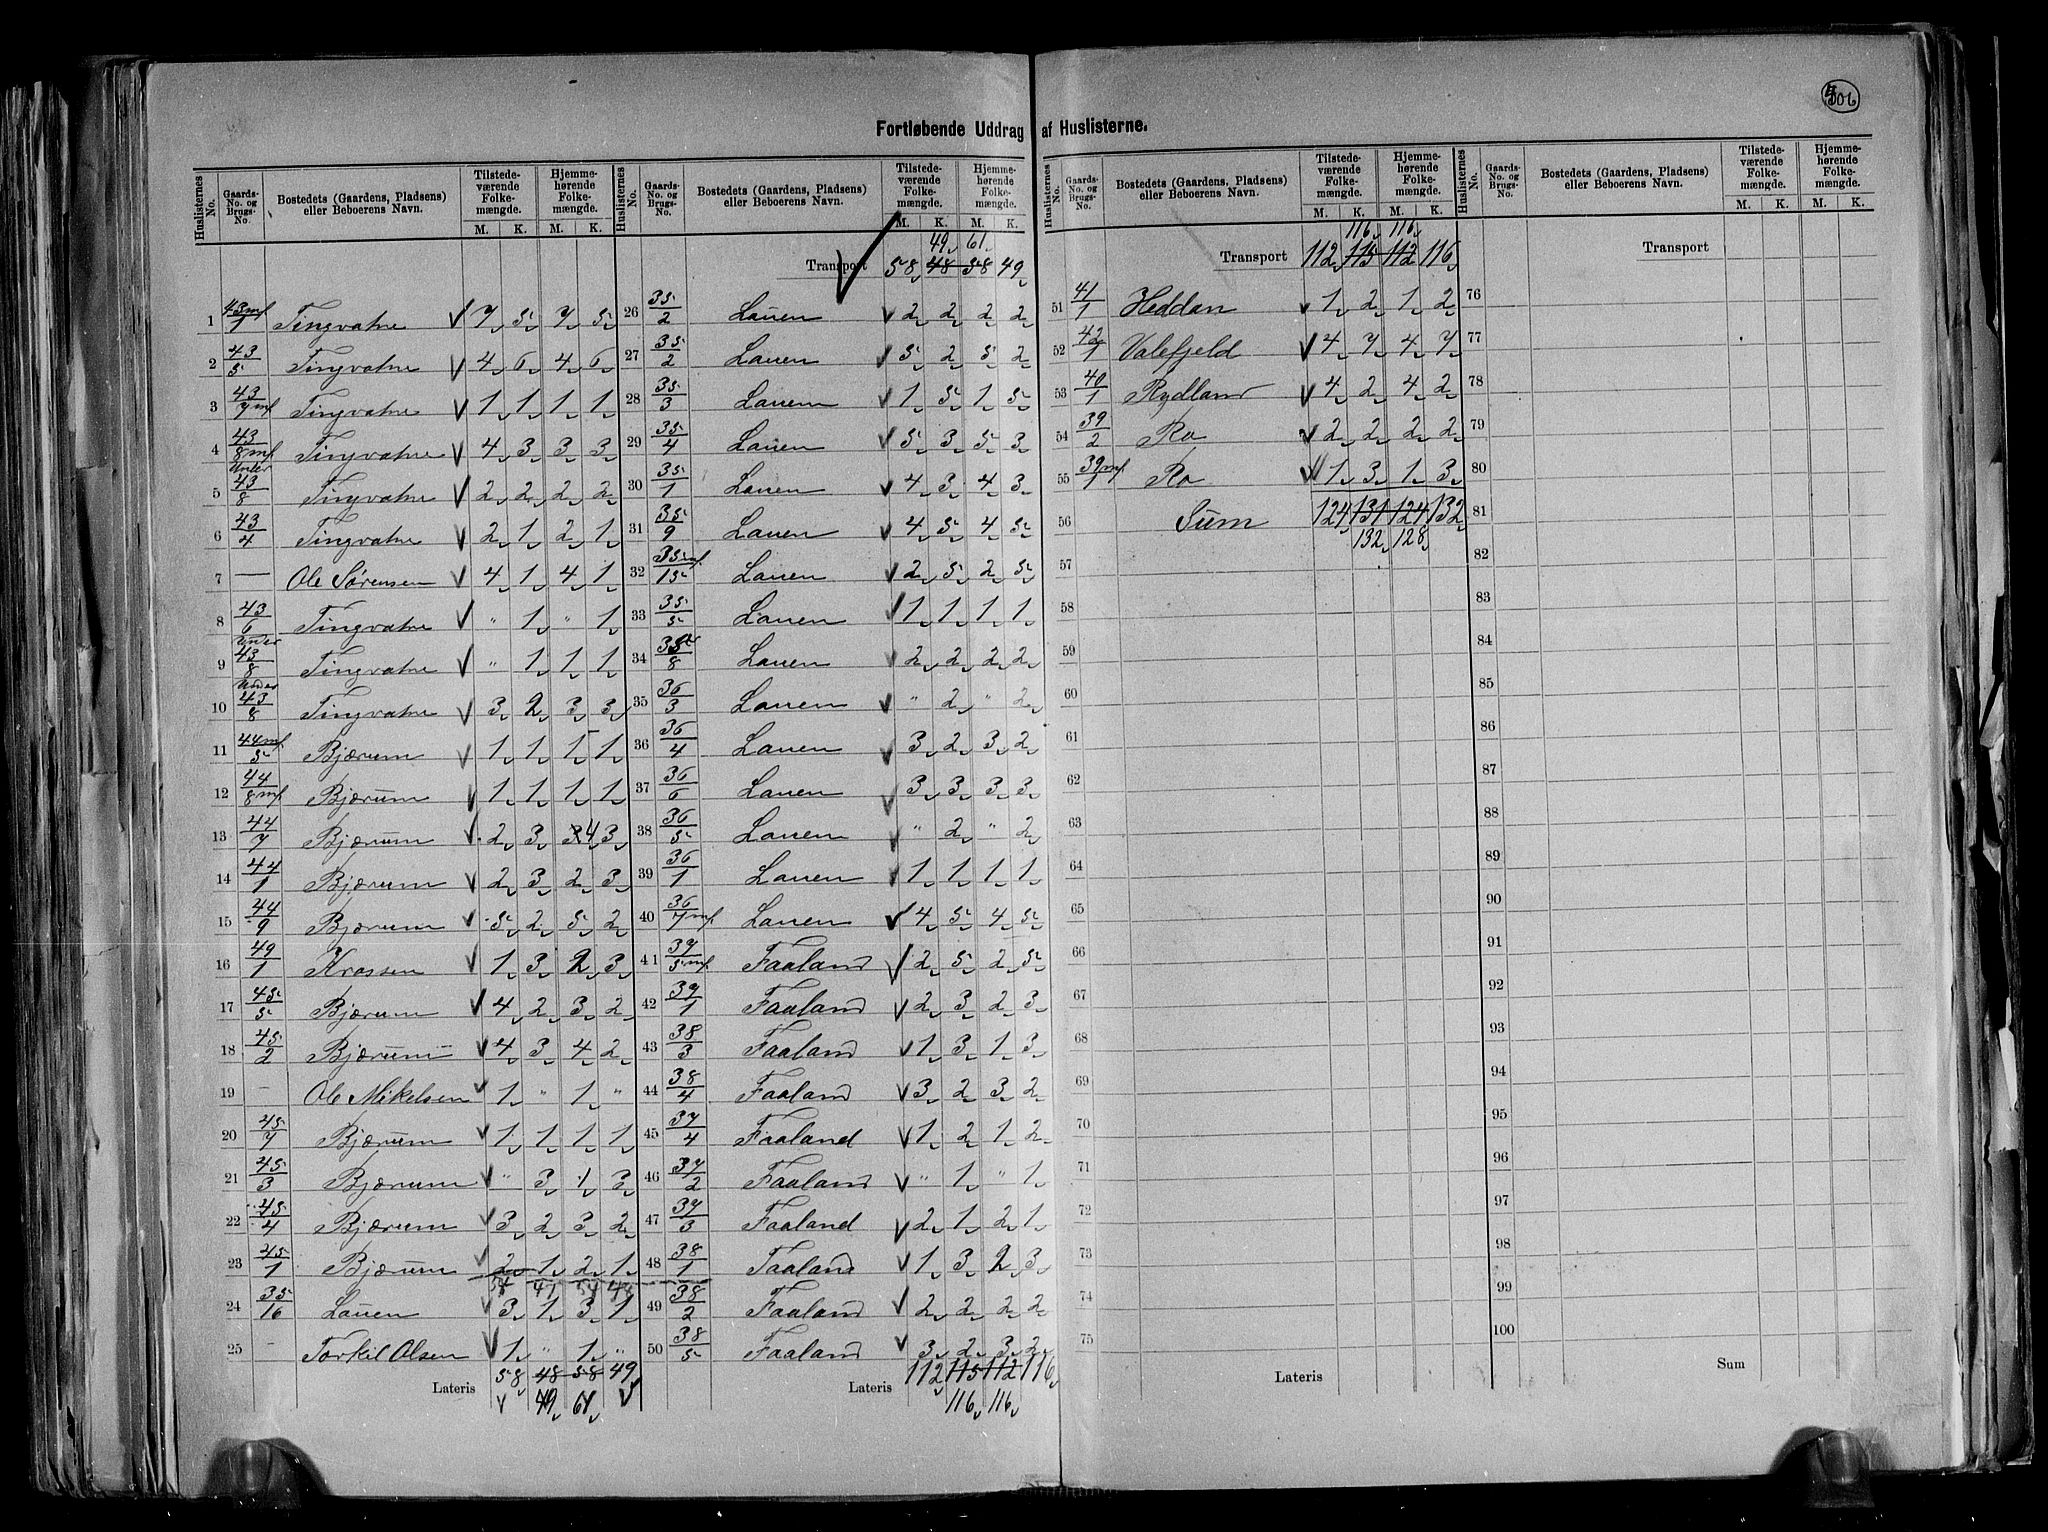 506
Fortløbende Uddrag af Huslisterne.
Huslisternes No. | Gaards-No. og Brugs-No. | Bostedets (Gaardens, Pladsens) eller Beboerens Navn. | Tilstedeværende Folkemængde. M. K. | Hjemmehørende Folkemængde. M. K.
1 43 mf/1 Tingvatne 7 5 7 5
2 43/5 Tingvatne 4 6 4 6
3 43/7 mf Tingvatne 1 1 1 1
4 43/8 mf Tingvatne 4 3 3 3
5 Under 43/8 Tingvatne 2 2 2 2
6 43/4 Tingvatne 2 1 2 1
7 — Ole Sørensen 4 1 4 1
8 43/6 Tingvatne " 1 " 1
9 Under 43/8 Tingvatne " 1 1 1
10 Under 43/8 Tingvatne 3 2 3 3
11 44 mf/5 Bjærum 1 1 1 1
12 44/8 mf Bjærum 1 1 1 1
13 44/7 Bjærum 2 3 3 4 3
14 44/1 Bjærum 2 3 2 3
15 44/9 Bjærum 5 2 5 2
16 49/1 Krossen 1 3 2 3
17 45/5 Bjærum 4 2 3 2
18 45/2 Bjærum 4 3 4 2
19 - Ole Mikelsen 1 " 1 "
20 45/7 Bjærum 1 1 1 1
21 45/3 Bjærum " 3 1 3
22 45/4 Bjærum 3 2 3 2
23 45/1 Bjærum 2 1 2 1
54 47 54 48
24 35/16 Lauen 3 1 3 1
25 - Torkil Olsen 1 " 1 "
Lateris 58 48 58 49
49 61
Huslisternes No. | Gaards-No. og Brugs-No. | Bostedets (Gaardens, Pladsens) eller Beboerens Navn. | Tilstedeværende Folkemængde. M. K. | Hjemmehørende Folkemængde. M. K.
49 61
Transport 58 48 58 49
26 35/2 Lauen 2 2 2 2
27 35/2 Lauen 5 2 5 2
28 35/3 Lauen 1 5 1 5
29 35/4 Lauen 5 3 5 3
30 35/1 Lauen 4 3 4 3
31 35/9 Lauen 4 5 4 5
32 35 mf/15 Lauen 2 5 2 5
33 35/5 Lauen 1 1 1 1
34 35/8 Lauen 2 2 2 2
35 36/3 Lauen " 2 " 2
36 36/4 Lauen 3 2 3 2
37 36/6 Lauen 3 3 3 3
38 36/5 Lauen " 2 " 2
39 36/1 Lauen 1 1 1 1
40 36/7 mf Lauen 4 5 4 5
41 37/5 mf Faaland 2 5 2 5
42 37/1 Faaland 2 3 2 3
43 38/3 Faaland 1 3 1 3
44 38/4 Faaland 3 2 3 2
45 37/4 Faaland 1 2 1 2
46 37/2 Faaland " 1 " 1
47 37/3 Faaland 2 1 2 1
48 38/1 Faaland 1 3 2 3
49 38/2 Faaland 2 2 2 2
50 38/5 Faaland 3 2 3 2
Lateris 112 115 112 116
116 116
Huslisternes No. | Gaards-No. og Brugs-No. | Bostedets (Gaardens, Pladsens) eller Beboerens Navn. | Tilstedeværende Folkemængde. M. K. | Hjemmehørende Folkemængde. M. K.
116 116
Transport 112 115 112 116
51 41/1 Heddan 1 2 1 2
52 42/1 Valefjeld 4 7 4 7
53 40/1 Rydland 4 2 4 2
54 39/2 Ro 2 2 2 2
55 39 mf/1 Ro 1 3 1 3
56 Sum 124 131 124 132
132 128
57
58
59
60
61
62
63
64
65
66
67
68
69
70
71
72
73
74
75
Lateris
Huslisternes No. | Gaards-No. og Brugs-No. | Bostedets (Gaardens, Pladsens) eller Beboerens Navn. | Tilstedeværende Folkemængde. M. K. | Hjemmehørende Folkemængde. M. K.
Transport
76
77
78
79
80
81
82
83
84
85
86
87
88
89
90
91
92
93
94
95
96
97
98
99
100
Sum